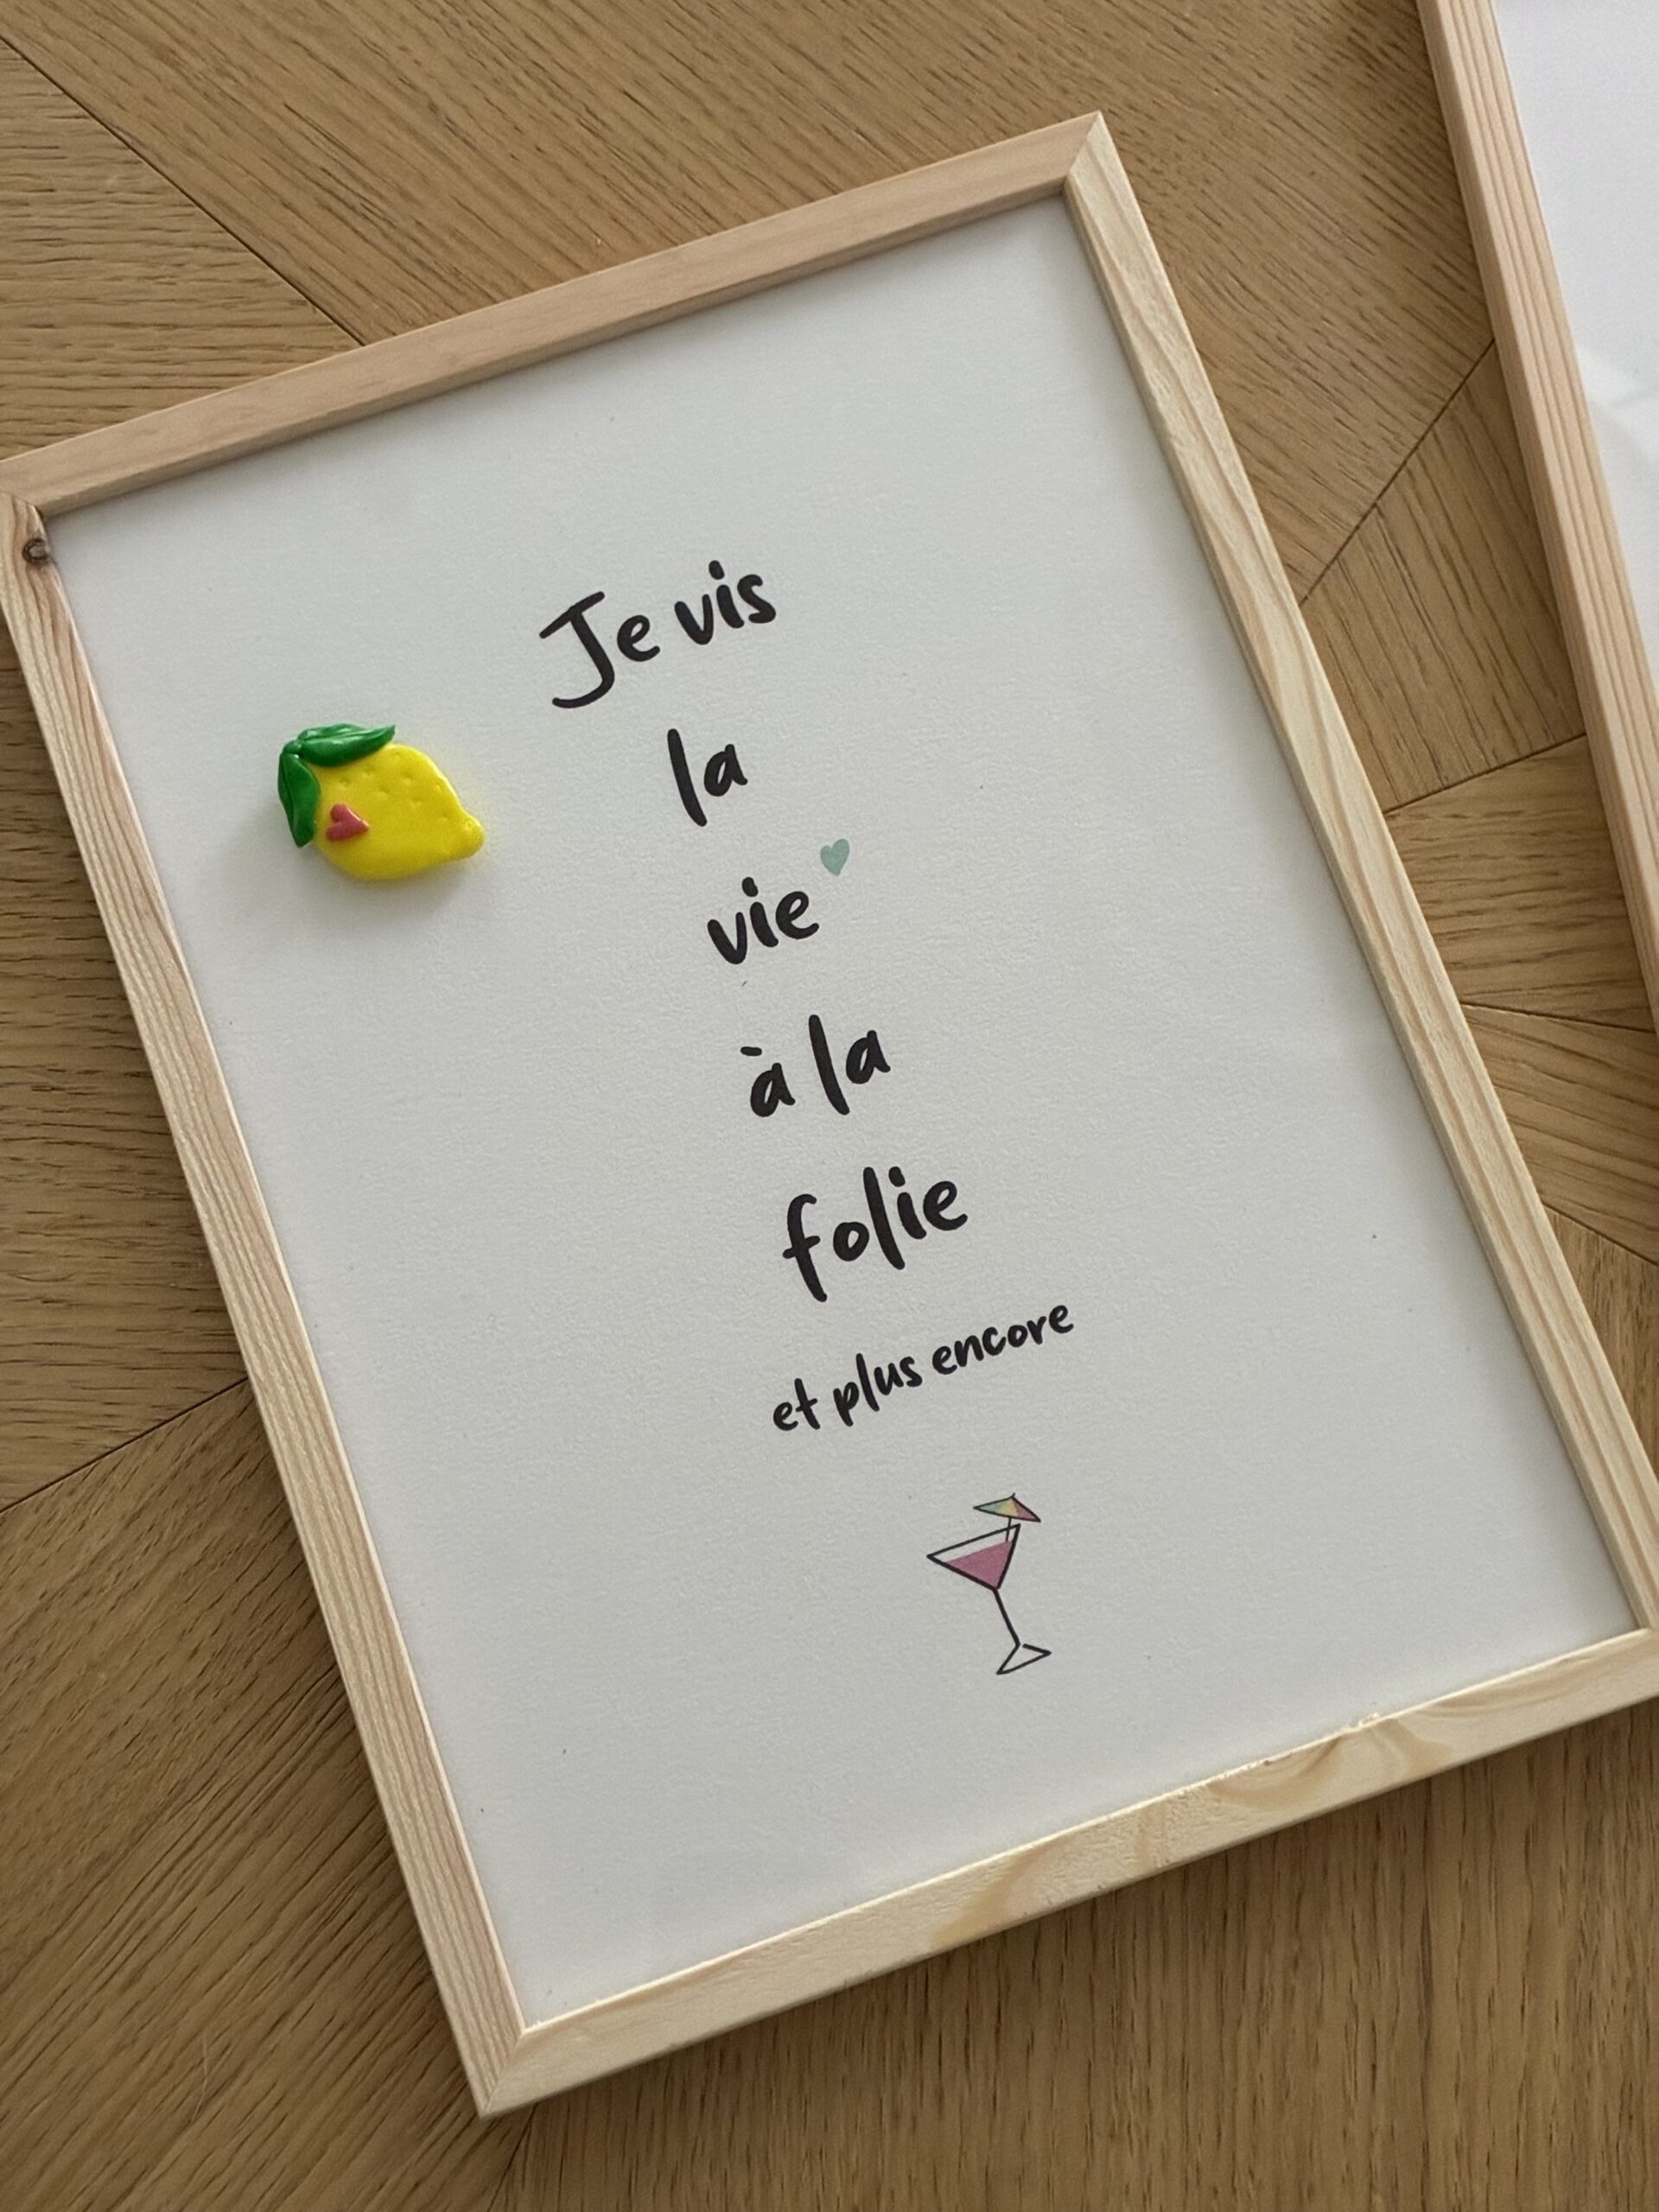 Je vis
la
vie
à la
folie
et plus encore